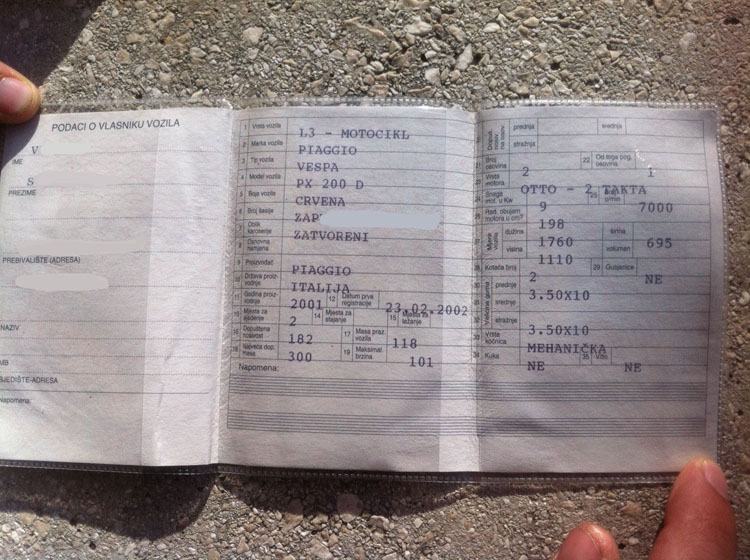 PODACI O VLASNIKU VOZILA
V
IME
S
PREZIME
PREBIVALIŠTE (ADRESA)
NAZIV
MB
SJEDIŠTE-ADRESA
Napomena:
1 Vrsta vozila L3 - MOTOCIKL
2 Marka vozila PIAGGIO
3 Tip vozila VESPA
4 Model vozila PX 200 D
5 Boja vozila CRVENA
6 Broj šasije ZAP
7 Oblik karoserije ZATVORENI
8 Osnovna namjena
9 Proizvođač PIAGGIO
10 Država proizvodnje ITALIJA
11 Godina proizvodnje 2001 12 Datum prve registracije 23.02.2002
Mjesta za sjedenje 2 14 Mjesta za stajanje 15 Mjesta za ležanje
Dopuštena nosivost 182 17 Masa praz. vozila 118
Najveća dop. masa 300 19 Maksimal. brzina 101
Napomena:
prednja srednja
stražnja
Broj osovina 2 22 Od toga pog. osovina 1
Vrsta motora OTTO - 2 TAKTA
Snaga mot. u Kw 9 7000
Rad. obujam motora u cm³ 198
dužina 1760 širina 695
visina 1110 volumen
Kotača broj 2 29 Gusjenice NE
prednje 3.50X10
srednje
stražnje 3.50X10
Vrsta kočnica MEHANIČKA
34 Kuka NE 35 Vitlo NE